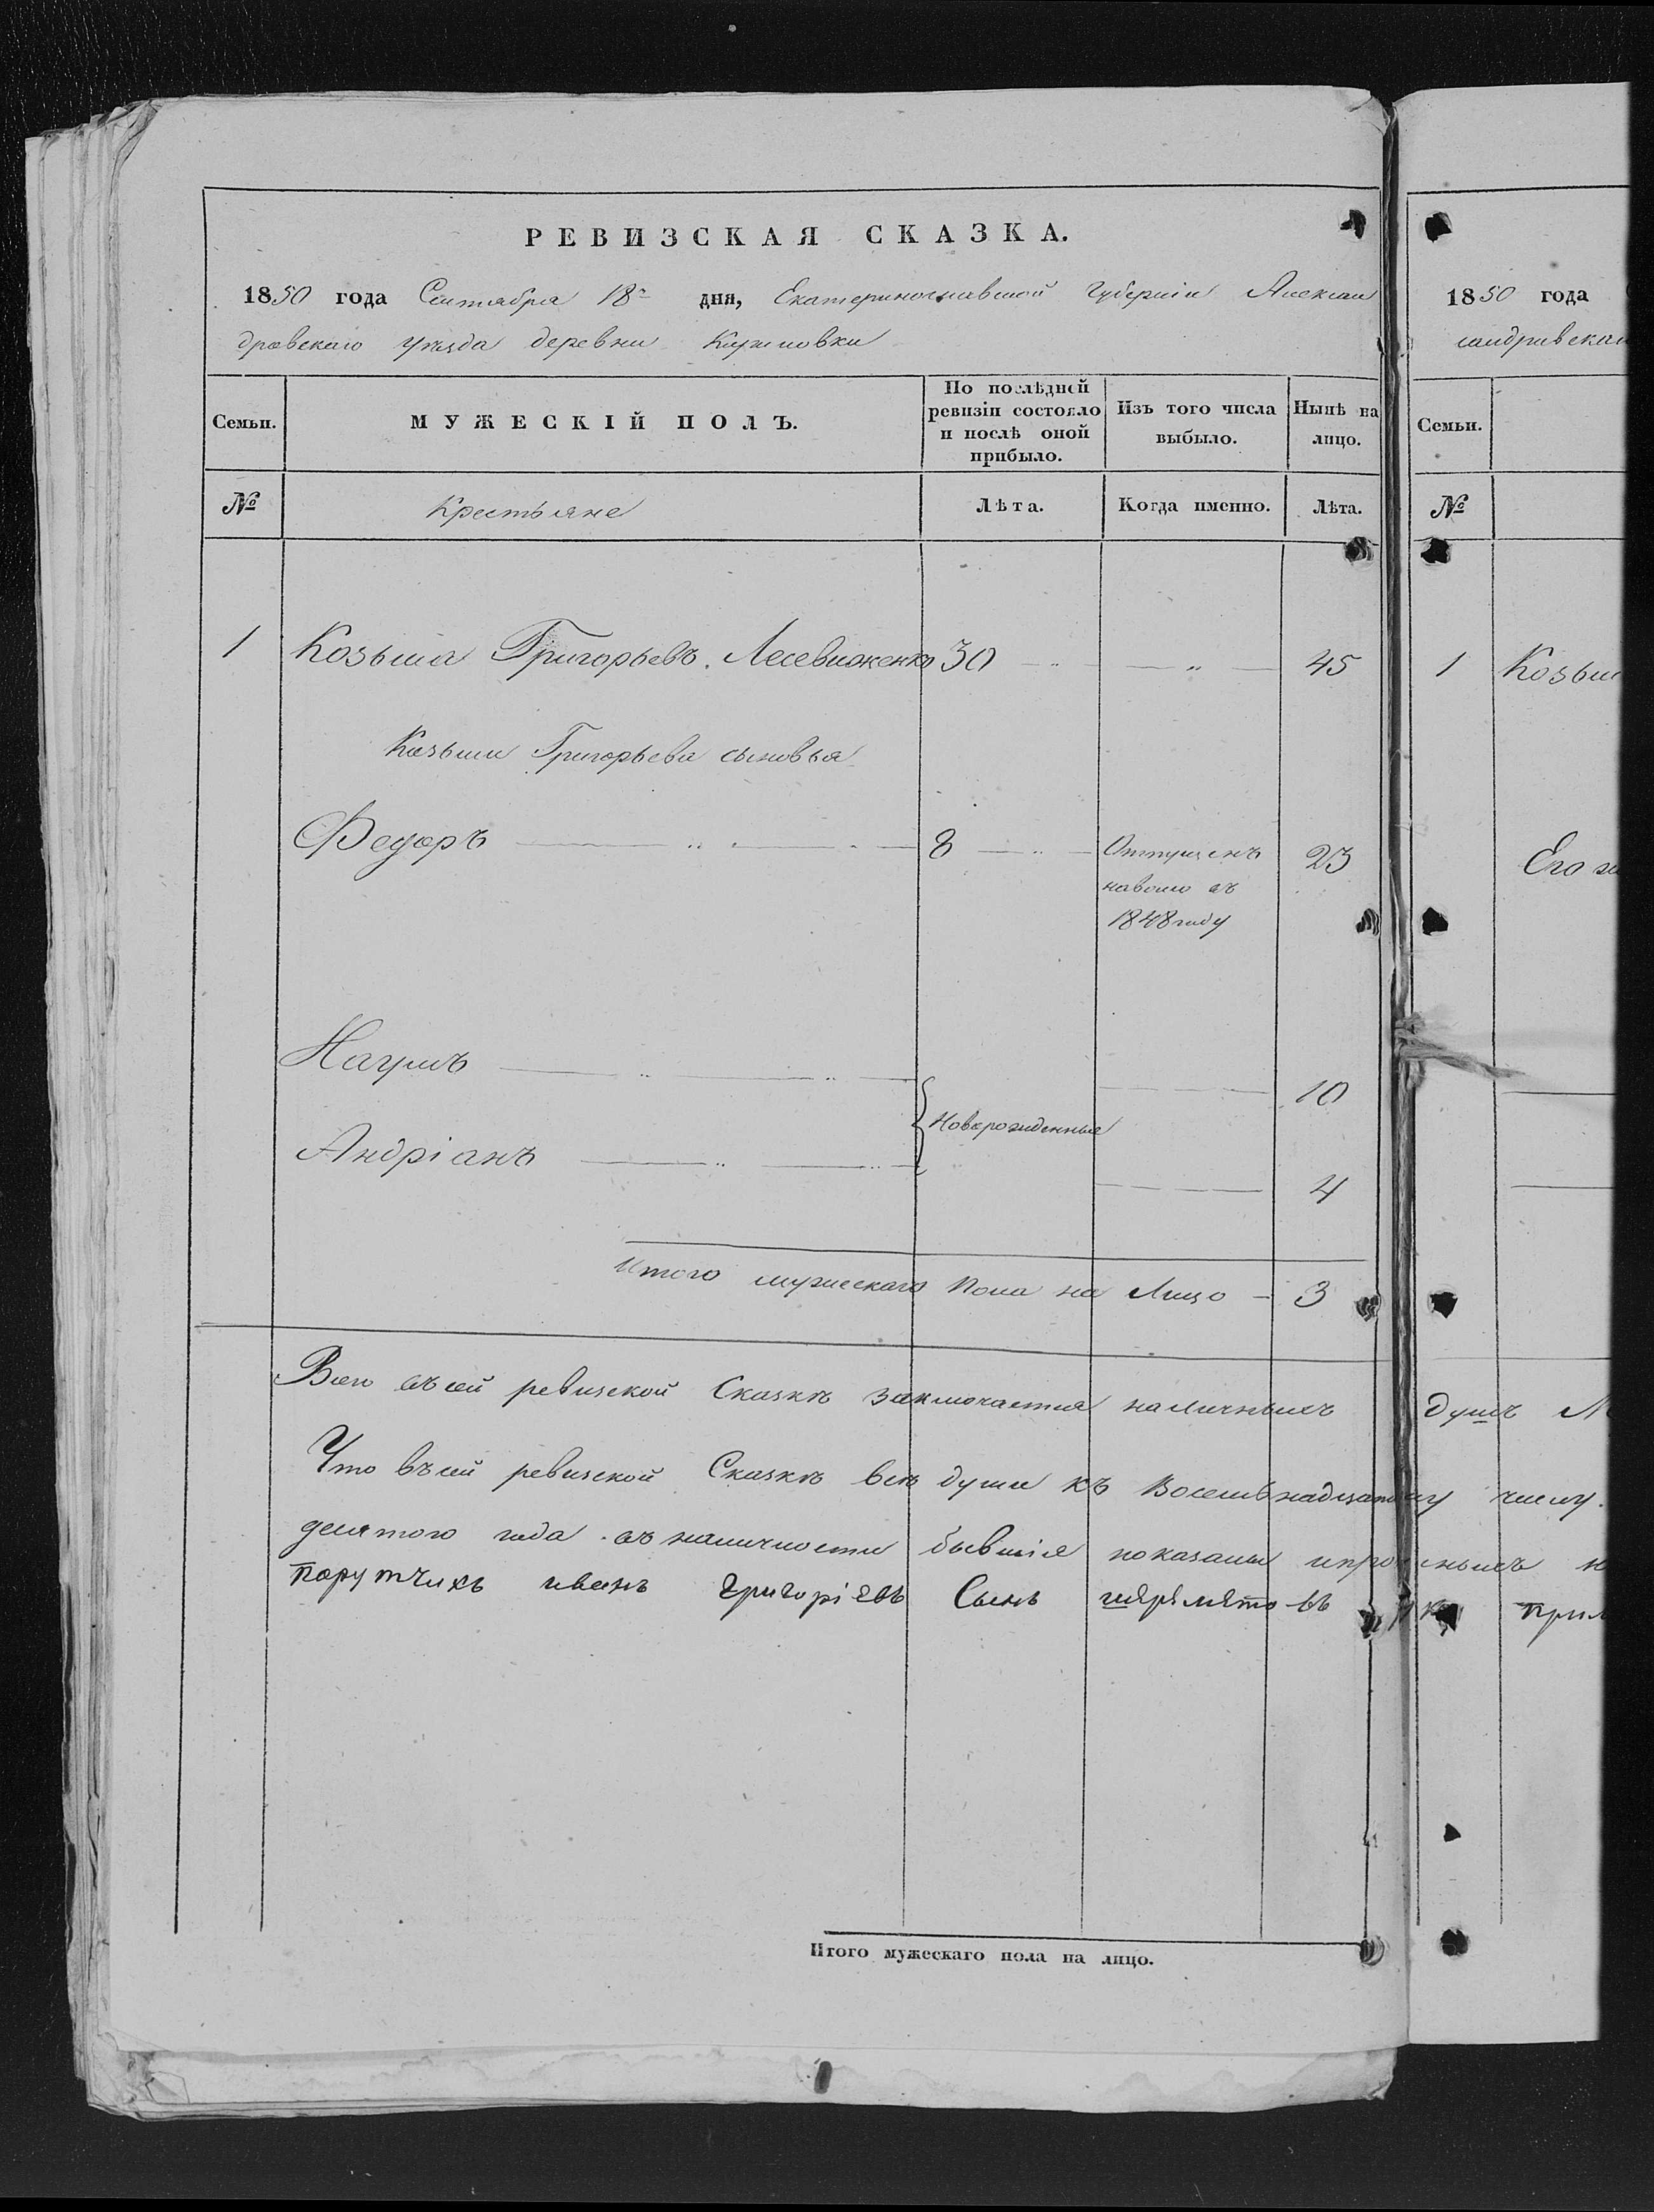 РЕВИЗСКАЯ СКАЗКА.
1850 года Сентября 18го дня, Екатеринославской Губернiи Алексан
дровскаго уѣзда деревни
Семьи. МУЖЕСКІЙ ПОЛЪ. По послѣдней ревизіи состояло и послѣ оной прибыло. Изъ того числа выбыло. Нынѣ на лицо.
№ Крестьяне Лѣта. Когда именно. Лѣта.
1 Козьма Григорьевъ 30 — „ — — „ — 45
Козьмы Григорьева сыновья
Федоръ — „ — 8 — „ — Отпущенъ 23
наволю въ
1848 году
Наумъ — „ — „ — 10
Новорожденные
Андріанъ — „ — „ — 4
Итого мужескаго пола на Лицо — 3
Всего въ сей ревизской Сказкѣ заключается наличныхъ
Что въ сей ревизской Сказкѣ всѣ души къ Восемьнадцатому
десятого года въ наличности бывшіе показаны
порутчикъ иванъ григоріевъ Сынъ
Итого мужескаго пола на лицо.
1850 года
сандровскаго
Семьи.
№
1 Козьм
Его
душъ М
числу.